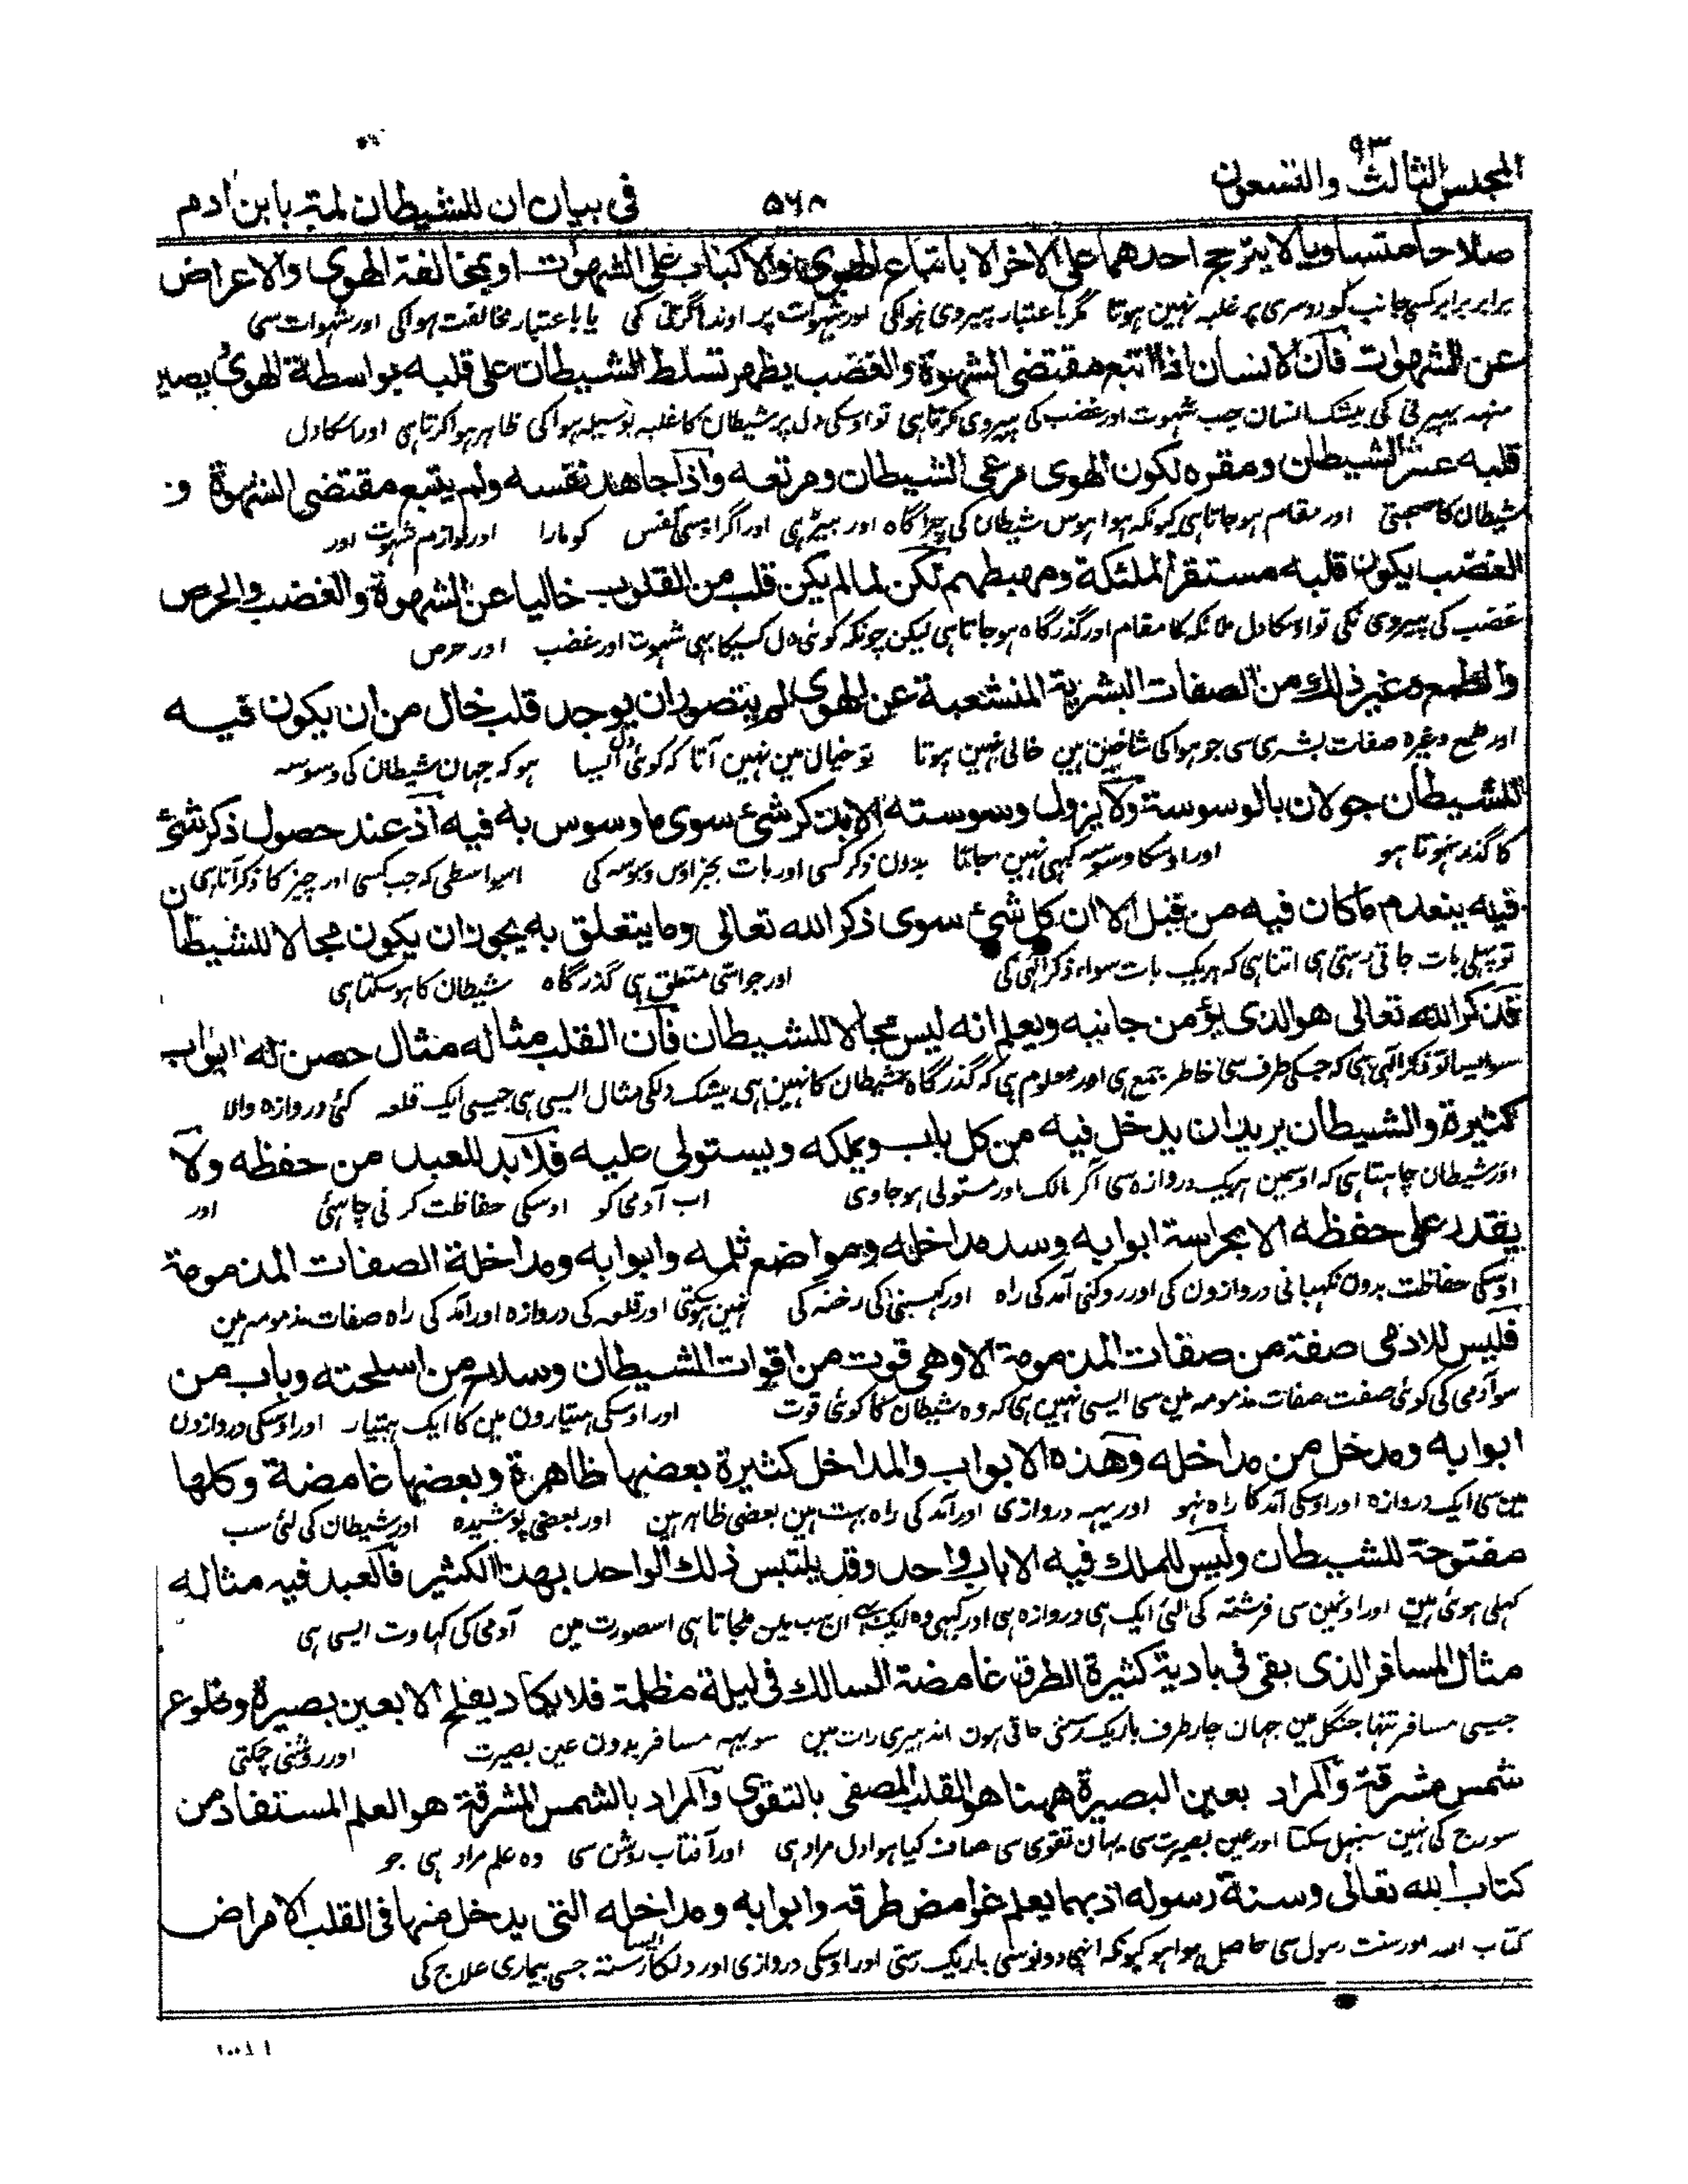 المجلس الثالث والتسعون ٩٣
٥٦٨
فی بیان ان للشیطان لمۃ بابن ادم
صلاحا متساویا لا یترجح احدھما علی الاخر الا باتباع الھوی والاکباب علی الشھوات او بمخالفۃ الھوی والاعراض
برابر برابر کسی جانب کو دوسری پر غلبہ نہین ہوتا مگر باعتبار پیروی ہوا کی اور شہوات پر اوندا گرنی کی یا باعتبار مخالفت ہوا کی اور شہوات سی
عن الشھوات فان الانسان اذا اتبع مقتضی الشھوۃ والغضب یظھر تسلط الشیطان علی قلبہ بواسطۃ الھوی یصیر
منہہ پہیرنی کی بیشک انسان جب شہوت اور غضب کی پیروی کرتا ہی تو اوسکی دل پر شیطان کا غلبہ بوسیلہ ہوا کی ظاہر ہوا کرتا ہی اور اسکا دل
قلبہ عش الشیطان ومقرہ لکون الھوی مرعی الشیطان ومرتعہ واذا جاھد نفسہ ولم یتبع مقتضی الشھوۃ و
شیطان کا اور مقام ہو جاتا ہی کیونکہ ہوا ہوس شیطان کی چراگاہ اور بیڑ ہی اور اگر اوسی نفس کو مارا اور لوازم شہوت اور
الغضب یکون قلبہ مستقر الملئکۃ ومھبطھم لکن لما لم یکن قلب من القلوب خالیا عن الشھوۃ والغضب والحرص
غضب کی پیروی نکی تو اوسکا دل ملائکہ کا مقام اور گذرگاہ ہو جاتا ہی لیکن چونکہ کوئی دل کسیکا بہی شہوت اور غضب اور حرص
والطمع وغیر ذلک من الصفات البشریۃ المنشعبۃ عن الھوی لم یتصور ان یوجد قلب خال من ان یکون فیہ
اور طمع وغیرہ صفات بشری سی جو ہوا کی شاخین ہین خالی نہین ہوتا تو خیال مین نہین آتا کہ کوئی دل ایسا ہو کہ جہان شیطان کی وسوسہ
للشیطان جولان بالوسوسۃ ولا یزول وسوستہ الا بذکر شئ سوی ما وسوس بہ فیہ اذ عند حصول ذکر شئ
کا گذر نہوتا ہو اور اوسکا وسوسہ کبہی نہین جاتا بدون ذکر کسی اور بات بجز اوس وسوسہ کی اسواسطی کہ جب کسی اور چیز کا ذکر آتا ہی
فیہ ینعدم ما کان فیہ من قبل الا ان کل شئ سوی ذکر اللہ تعالی وما یتعلق بہ یجوز ان یکون مجالا للشیطان
تو پہلی بات جاتی رہتی ہی اتنا ہی کہ ہریک بات سواء ذکر الہی کی اور جو اسی متعلق ہی گذرگاہ شیطان کا ہو سکتا ہی
فذکر اللہ تعالی ھو الذی یؤمن جانبہ ویعلم انہ لیس مجالا للشیطان فان القلب مثالہ مثال حصن لہ ابواب
سو ایسا تو ذکر الہی ہی کہ جسکی طرف سی خاطر جمع ہی اور معلوم ہی کہ گذرگاہ شیطان کا نہین ہی بیشک دلکی مثال ایسی ہی جیسی ایک قلعہ کئی دروازہ والا
کثیرۃ والشیطان یرید ان یدخل فیہ من کل باب ویملکہ ویستولی علیہ فلا بد للعبد من حفظہ ولا
اور شیطان چاہتا ہی کہ اوسمین ہریک دروازہ سی آکر مالک اور مستولی ہو جاوی اب آدمی کو اوسکی حفاظت کرنی چاہئی اور
یقدر علی حفظہ الا بحراسۃ ابوابہ وسد مداخلہ ومواضع ثلمہ وابوابہ ومداخلۃ الصفات المذمومۃ
اوسکی حفاظت بدون نگہبانی دروازون کی اور روکنی آمد کی راہ اور رخنہ کی نہین ہو سکتی اور قلعہ کی دروازہ اور آمد کی راہ صفات مذمومہ ہین
فلیس للادمی صفۃ من صفات المذمومۃ الا وھی قوت من اقوات الشیطان وسلاح من اسلحتہ وباب من
سو آدمی کی کوئی صفت صفات مذمومہ مین سی ایسی نہین ہی کہ وہ شیطان کا کوئی قوت اور اوسکی ہتیارون مین کا ایک ہتیار اور اوسکی دروازون
ابوابہ ومدخل من مداخلہ وھذہ الابواب والمداخل کثیرۃ بعضھا ظاھرۃ وبعضھا غامضۃ وکلھا
مین سی ایک دروازہ اور اوسکی آمد کا راہ نہو اور یہہ دروازی اور آمد کی راہ بہت ہین بعضی ظاہر ہین اور بعضی پوشیدہ اور شیطان کی لئی سب
مفتوحۃ للشیطان ولیس للملک فیہ الا باب واحد وقد یلتبس ذلک الواحد بھذا الکثیر فالعبد فیہ مثالہ
کہلی ہوئی ہین اور اونمین سی فرشتہ کی لئی ایک ہی دروازہ ہی اور کبہی وہ ایک ان سب مین ملجاتا ہی اسصورت مین آدمی کی کہاوت ایسی ہی
مثال المسافر الذی بقی فی بادیۃ کثیرۃ الطرق غامضۃ المسالک فی لیلۃ مظلمۃ فلا یکاد یفلح الا بعین بصیرۃ وطلوع
جیسی مسافر تنہا جنگل مین جہان چار طرف باریک رستی جاتی ہون اندہیری رات مین سو یہہ مسافر بدون عین بصیرت اور روشنی چمکتی
شمس مشرقۃ والمراد بعین البصیرۃ ھھنا ھو القلب المصفی بالتقوی والمراد بالشمس المشرقۃ ھو العلم المستفاد من
سورج کی نہین سنبہل سکتا اور عین بصیرت سی یہان تقوی سی صاف کیا ہوا دل مراد ہی اور آفتاب روشن سی وہ علم مراد ہی جو
کتاب اللہ تعالی وسنۃ رسولہ اذ بھما یعلم غوامض طرقہ وابوابہ ومداخلہ التی یدخل منھا فی القلب الامراض
کتاب اللہ اور سنت رسول سی حاصل ہوا ہو کیونکہ انہی دونوسی باریک رستی اور اوسکی دروازی اور دلکا رستہ جسی بیماری علاج کی